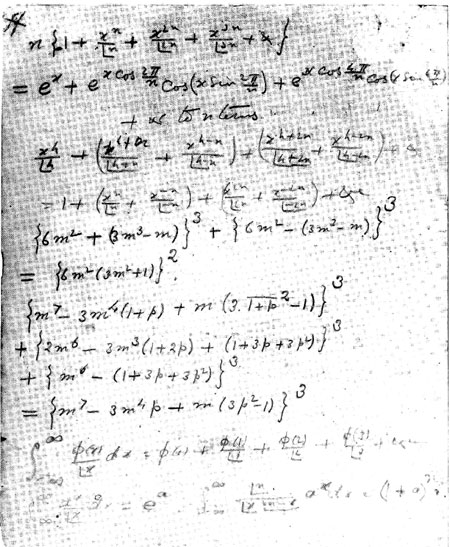 n {1 + x^n/⌊n + x^2n/⌊2n + x^3n/⌊3n + &}
= e^x + e^(x cos 2π/n) cos(x sin 2π/n) + e^(x cos 4π/n) cos(x sin 4π/n)
+ &c to n terms.
x^h/⌊h + (x^(h+n)/⌊h+n + x^(h-n)/⌊h-n) + (x^(h+2n)/⌊h+2n + x^(h-2n)/⌊h-2n) + &
= 1 + (x^n/⌊n + x^-n/⌊-n) + (x^2n/⌊2n + x^-2n/⌊-2n) + &c
{6m² + (3m³ - m)}³ + {6m² - (3m³ - m)}³
= {6m²(3m² + 1)}².
{m⁷ - 3m⁴(1+p) + m(3.\overline{1+p}² - 1)}³
+ {2m⁶ - 3m³(1+2p) + (1+3p+3p²)}³
+ {m⁶ - (1+3p+3p²)}³
= {m⁷ - 3m⁴p + m(3p² - 1)}³
∫ φ(x)/⌊x dx = φ(0) + φ(1)/⌊1 + φ(2)/⌊2 + φ(3)/⌊3 + &c
= e^a